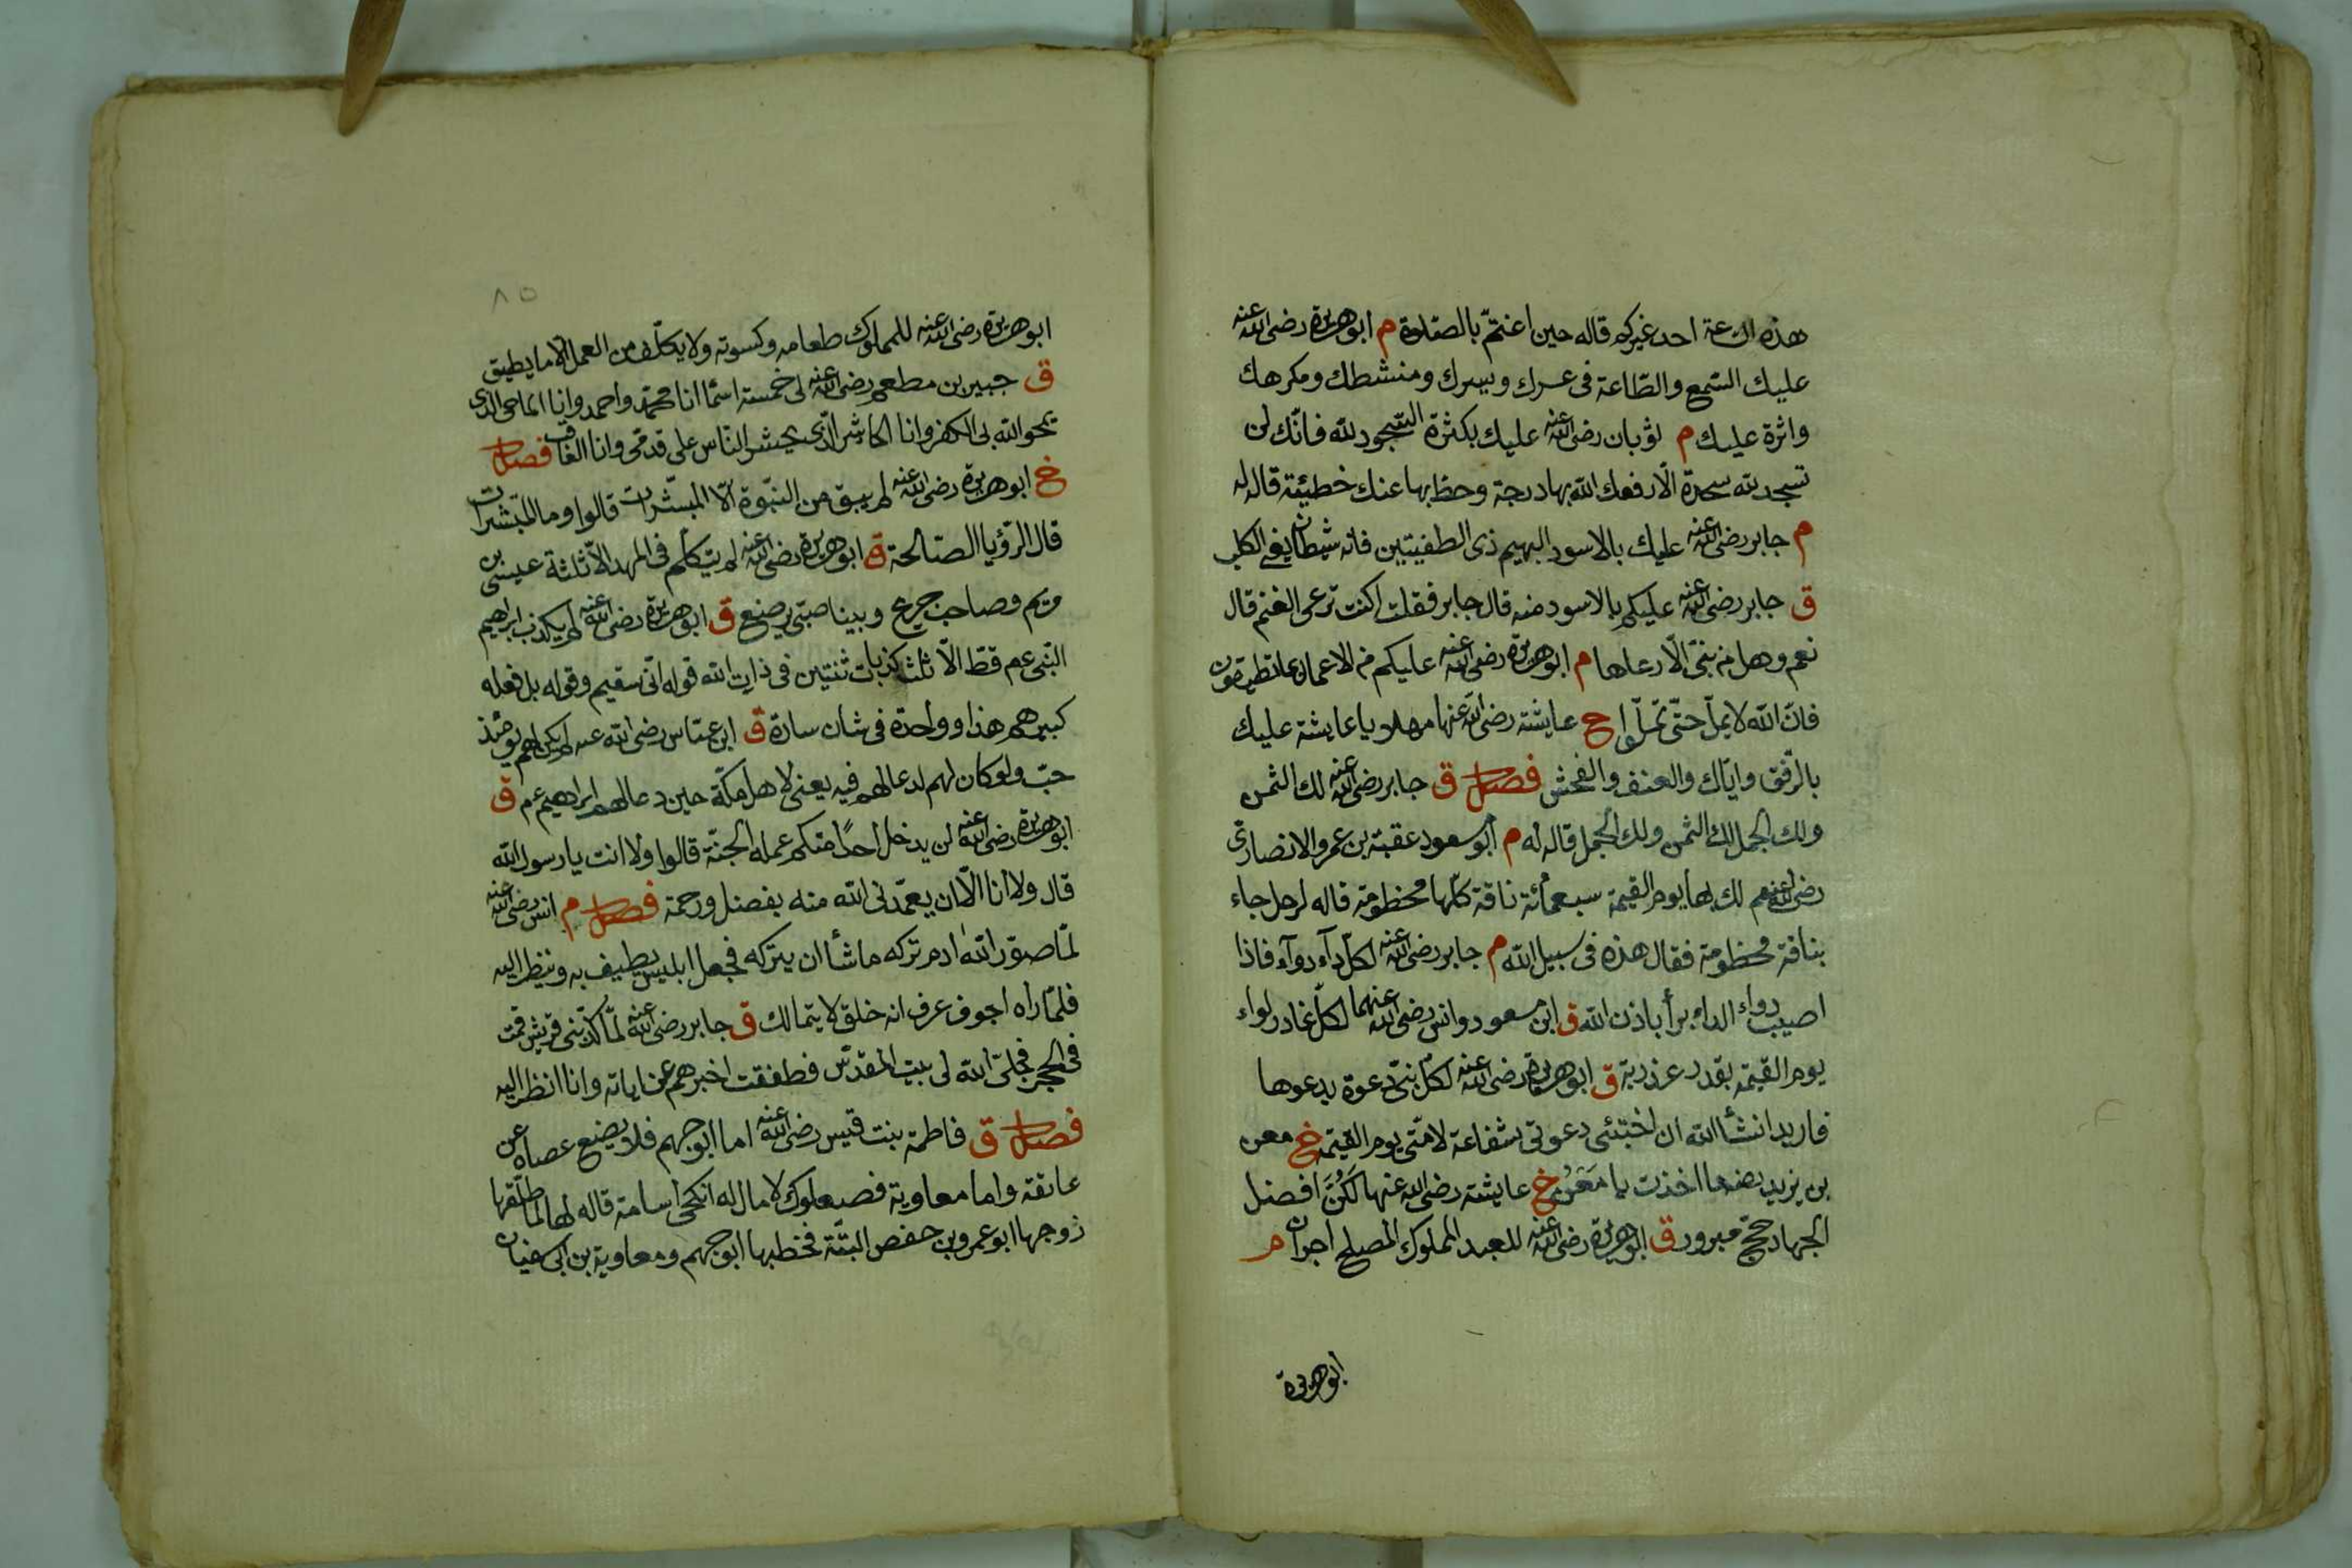 هذه الساعة احد غيركم قاله حين اعتمّ بالصّلوة م ابو هريرة رضى الله عنه
عليك السّمع والطّاعة فى عسرك ويسرك ومنشطك ومكرهك
واثرة عليك م ثوبان رضى الله عنه عليك بكثرة السّجود لله فانّك لن
تسجد لله سجدة الّا رفعك الله بها درجة وحط بها عنك خطيئة قاله له
م جابر رضى الله عنه عليك بالاسود البهيم ذى الطفيتين فانه شيطان يعنى الكلب
ق جابر رضى الله عنه عليكم بالاسود منه قال جابر فقلت اكنت ترعى الغنم قال
نعم وهل من نبىّ الّا رعاها م ابو هريرة رضى الله عنه عليكم من الاعمال ما تطيقون
فانّ الله لا يملّ حتّى تملّوا خ عايشة رضى الله عنها مهلا يا عايشة عليك
بالرّفق وايّاك والعنف والفحش فصل ق جابر رضى الله عنه لك الثمن
ولك الجمل لك الثمن ولك الجمل قاله له م ابو مسعود عقبة بن عمرو الانصارى
رضى الله عنهم لك بها يوم القيمة سبعمائة ناقة كلّها مخطومة قاله لرجل جاء
بناقة مخطومة فقال هذه فى سبيل الله م جابر رضى الله عنه لكلّ داء دواء فاذا
اصيب دواء الداء برأ باذن الله ق ابن مسعود وانس رضى الله عنهما لكلّ غادر لواء
يوم القيمة بقدر غدرته ق ابو هريرة رضى الله عنه لكلّ نبىّ دعوة يدعوها
فاريد انشأ الله ان اختبئى دعوتى شفاعة لامّتى يوم القيمة خ معن
بن يزيد رضى لك ما اخذت يا مَعْنُ خ عايشة رضى الله عنها لَكُنَّ افضل
الجهاد حجّ مبرور ق ابو هريرة رضى الله عنه للعبد المملوك المصلح اجران م
ابو هريرة
٨٥
ابو هريرة رضى الله عنه للمملوك طعامه وكسوته ولا يكلّف من العمل الّا ما يطيق
ق جبير بن مطعم رضى الله عنه لى خمسة اسمأ انا محمّد واحمد وانا الماحى الذى
يمحو الله بى الكفر وانا الحاشر الّذى يحشر النّاس على قدمى وانا العاقب فصل
خ ابو هريرة رضى الله عنه لم يبق من النبّوة الّا المبشّرات قالوا وما المبّشرات
قال الرّؤيا الصّالحة ق ابو هريرة رضى الله عنه لم يتكلّم فى المهد الّا ثلثة عيسى بن
مريم وصاحب جريج وبينا صبىّ يرضع ق ابو هريرة رضى الله عنه لم يكذب ابراهيم
النّبى عم قطّ الّا ثلث كذبات ثنتين فى ذات الله قوله انّى سقيم وقوله بل فعله
كبيرهم هذا وواحدة فى شان سارة ق ابن عبّاس رضى الله عنه لم يكن لهم يومئذ
حبّ ولو كان لهم لدعا لهم فيه يعنى لاهل مكّة حين دعا لهم ابراهيم عم ق
ابو هريرة رضى الله عنه لن يدخل احدًا منكم عمله الجنّة قالوا ولا انت يا رسول الله
قال ولا انا الّا ان يتغمّدنى الله منه بفضل ورحمة فصل م انس رضى الله عنه
لمّا صوّر الله ادم تركه ما شأ ان يتركه فجعل ابليس يطيف به وينظر اليه
فلمّا راه اجوف عرف انه خلق لا يتمالك ق جابر رضى الله عنه لمّا كذّبنى قريش قمت
فى الحجر فجلّى الله لى بيت المقدّس فطفقت اخبرهم عن اياته وانا انظر اليه
فصل ق فاطمة بنت قيس رضى الله عنه اما ابو جهم فلا يضع عصاه عن
عاتقه واما معاوية فصعلوك لا مال له انكحى اسامة قاله لها لمّا طلّقها
زوجها ابو عمرو بن حفص البتّة فخطبها ابو جهم ومعاوية بن ابى سفيان